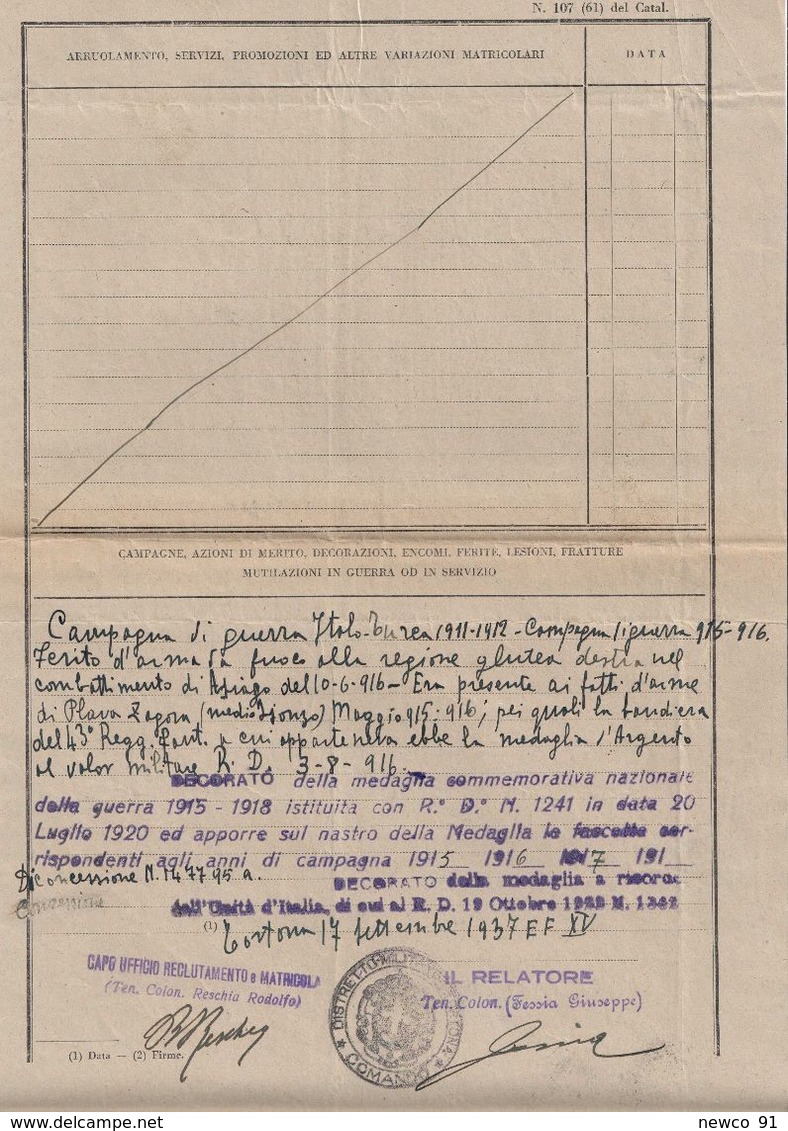 N. 107 (61) del Catal.
ARRUOLAMENTO, SERVIZI, PROMOZIONI ED ALTRE VARIAZIONI MATRICOLARI
DATA
CAMPAGNE, AZIONI DI MERITO, DECORAZIONI, ENCOMI, FERITE, LESIONI, FRATTURE
MUTILAZIONI IN GUERRA OD IN SERVIZIO
Campagna di guerra Italo-Turca 1911-1912 - Campagna di guerra 915-916.
Ferito d'arma da fuoco alla regione glutea destra nel
combattimento di Asiago del 10-6-916 - Era presente ai fatti d'arme
di Plava Zagora (medio Isonzo) Maggio 915-916; pei quali la bandiera
del 43° Regg. Fant. a cui apparteneva ebbe la medaglia d'Argento
al valor militare R. D. 3-8-916.
DECORATO della medaglia commemorativa nazionale
della guerra 1915 - 1918 istituita con R.° D.° N. 1241 in data 20
Luglio 1920 ed apporre sul nastro della Medaglia le fascette cor-
rispondenti agli anni di campagna 1915 1916 1917 191
Di concessione N. 147795 a.
Concessione
DECORATO della medaglia a ricordo
dell'Unità d'Italia, di cui al R. D. 19 Ottobre 1922 N. 1362
(1) Tortona 17 settembre 1937 EF XV
CAPO UFFICIO RECLUTAMENTO e MATRICOLA
(Ten. Colon. Reschia Rodolfo)
IL RELATORE
Ten. Colon. (Fessia Giuseppe)
DISTRETTO MILITARE TORTONA
* COMANDO *
(1) Data — (2) Firme.
www.delcampe.net
newco 91